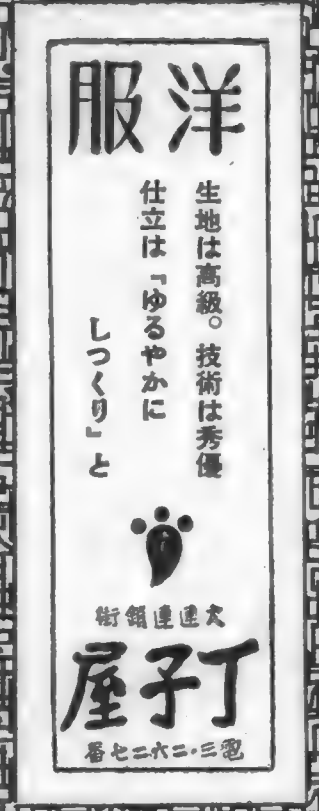 洋服
生地は高級。技術は秀優
仕立は『ゆるやかに
しつくり』と
大連連鎖街
丁子屋
電三・二六二七番